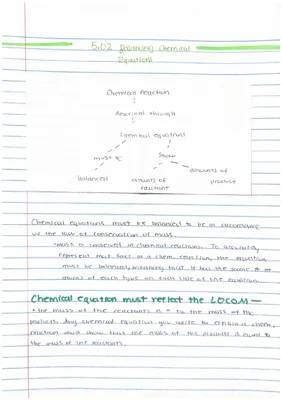 5.02 Balancing Chemical
Equations
Chemical reaction
described through
Chemical equations
must be
Show
balanced
amounts of
reactant
amounts of
product
Chemical equations must be balanced to be in accordance
w/ the law of conservation of mass.
*mass is conserved in chemical reactions. To accurately
represent that fact in a chem. reaction, the equation
must be balanced, meaning that it has the same # of
atoms of each type on each side of the equation.
Chemical equation must reflect the LOCOM—
*the mass of the reactants is = to the mass of the
products. Any chemical equation you write to explain a chem.
reaction must show that the mass of the products is equal to
the mass of the reactants.